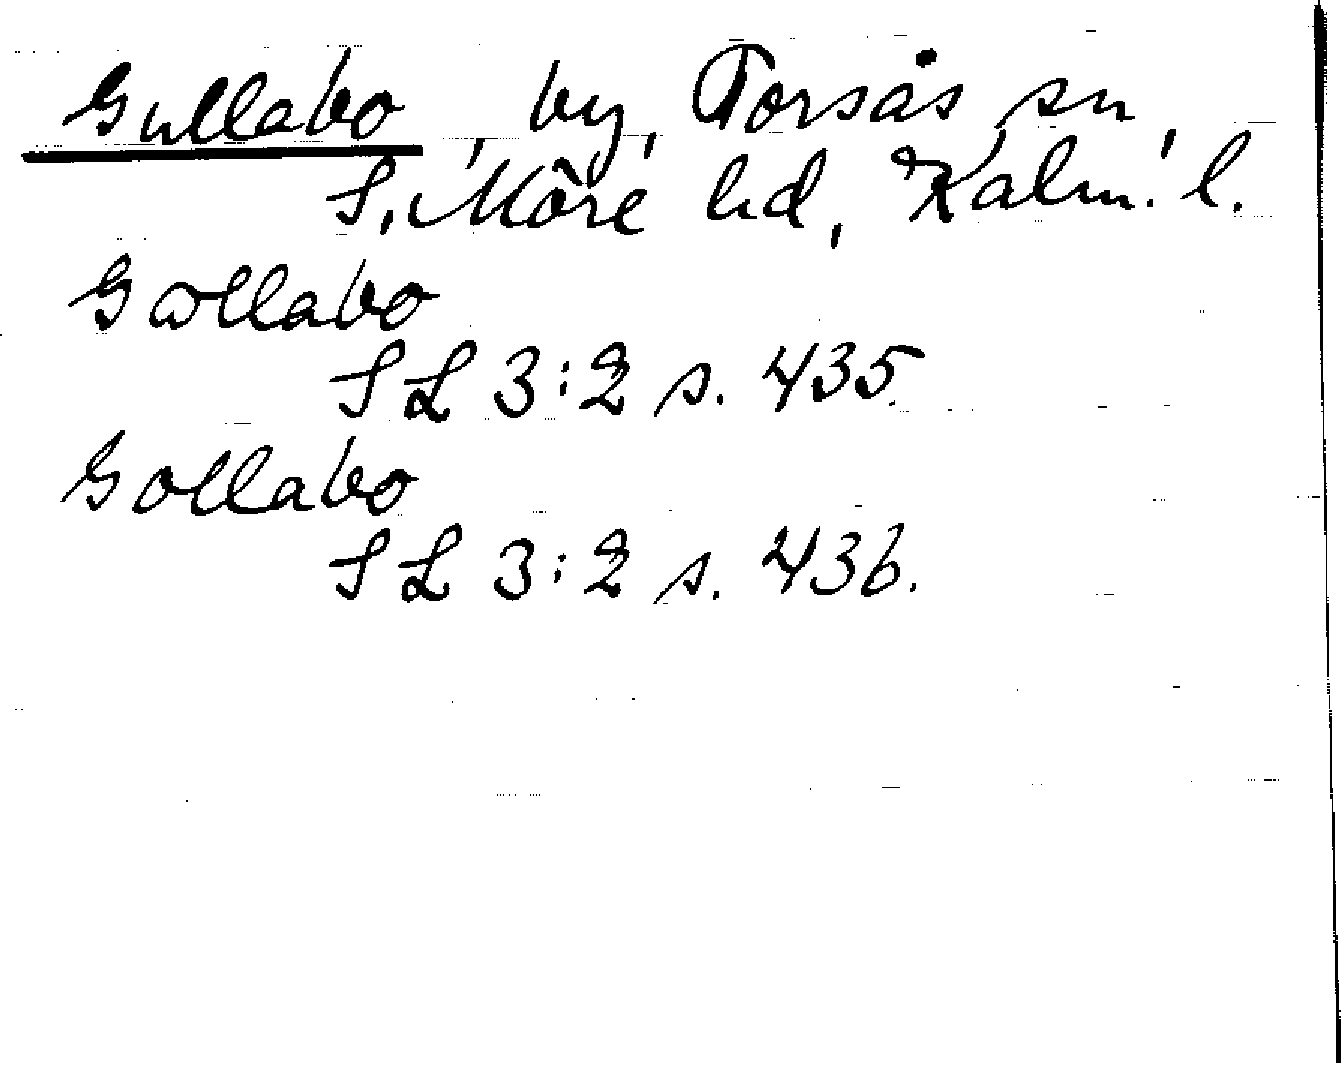 Gullabo, by, Torsås sn,
S. Möre hd, Kalm. l.
Gollabo
SL 3:2 s. 435.
Gollabo
SL 3:2 s. 436.